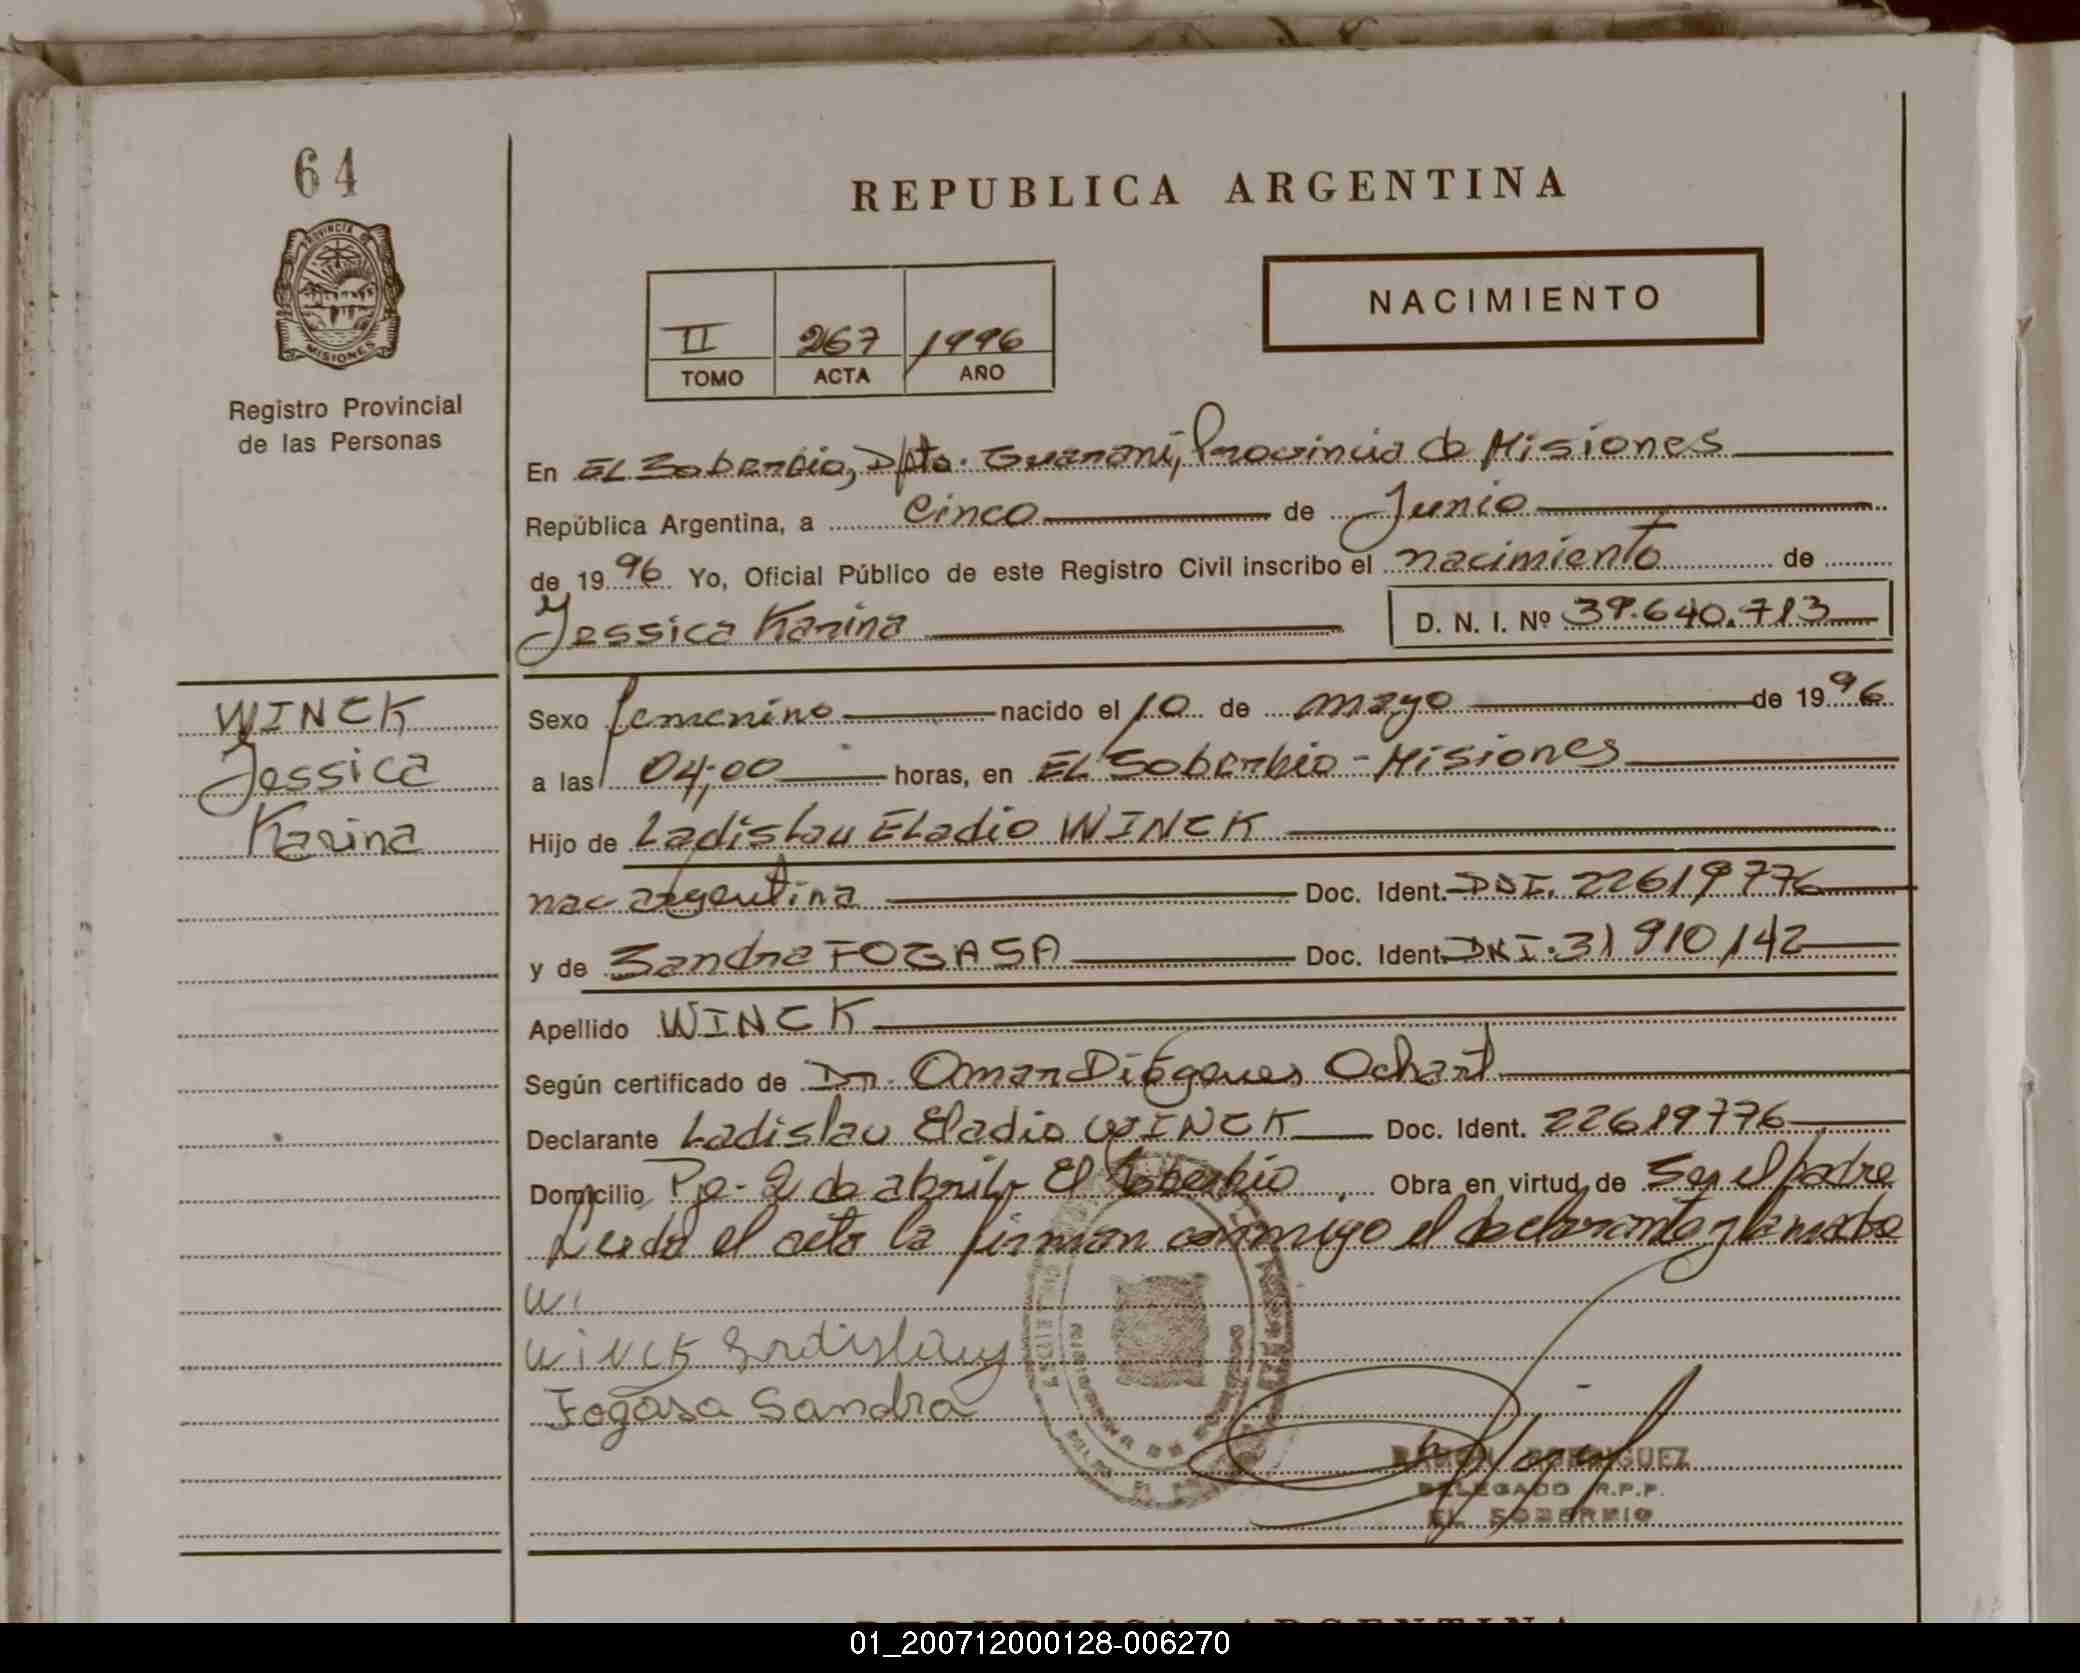 64
PROVINCIA DE
MISIONES
Registro Provincial
de las Personas
REPUBLICA ARGENTINA
NACIMIENTO
II 267 1996
TOMO ACTA AÑO
En EL Soberbio, Dpto. Guaraní, Provincia de Misiones
República Argentina, a Cinco de Junio
de 1996 Yo, Oficial Público de este Registro Civil inscribo el nacimiento de
Jessica Karina D. N. I. Nº 39.640.713
WINCK
Jessica
Karina
Sexo femenino nacido el 10 de mayo de 1996
a las 04,00 horas, en EL Soberbio - Misiones
Hijo de Ladislau ELadio WINCK
nac argentina Doc. Ident. DNI. 22619776
y de Sandra FOGASA Doc. Ident. DNI. 31 910 142
Apellido WINCK
Según certificado de Dr. Omar Diógenes Ochart
Declarante Ladislau Eladio WINCK Doc. Ident. 22619776
Domicilio Pje. 2 de abril - El Soberbio Obra en virtud de Ser el padre
Leida el acta la firman conmigo el declarante y la madre
Wi
Winck Ladislau
Fogasa Sandra
RAMON RODRIGUEZ
DELEGADO R.P.P.
EL SOBERBIO
REPUBLICA ARGENTINA
01_200712000128-006270